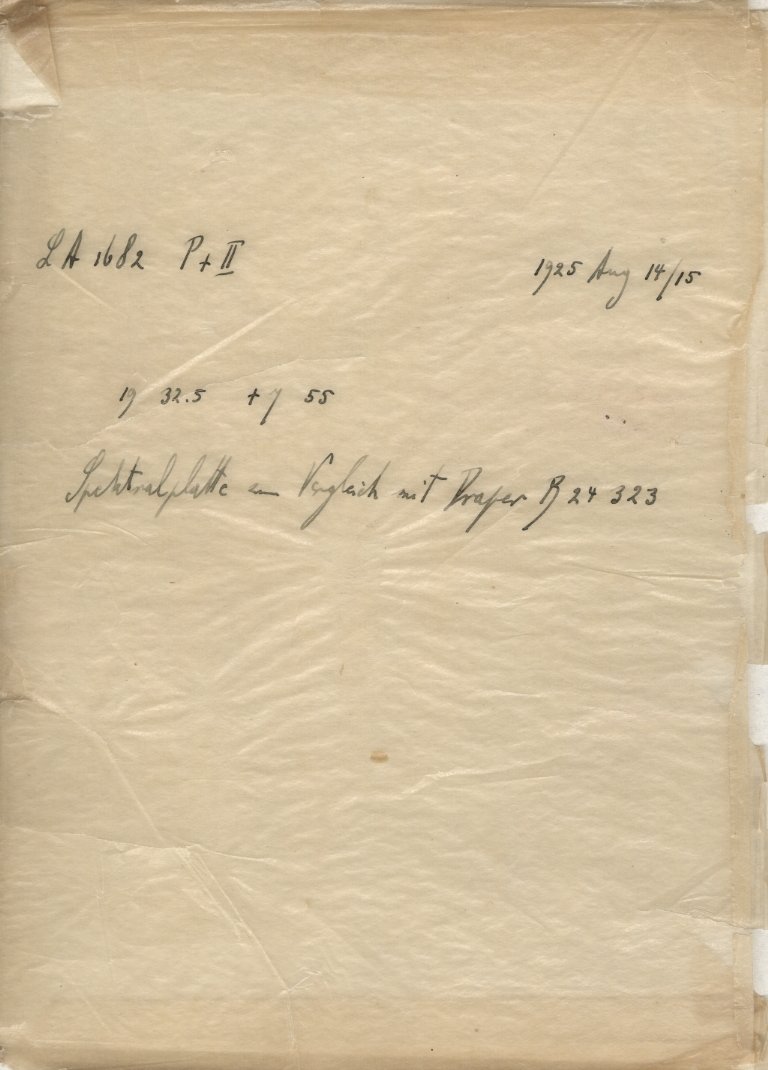 LA 1682 P+II 1925 Aug 14/15
19 32.5 +7 55
Spektralplatte zum Vergleich mit Draper B 24 323